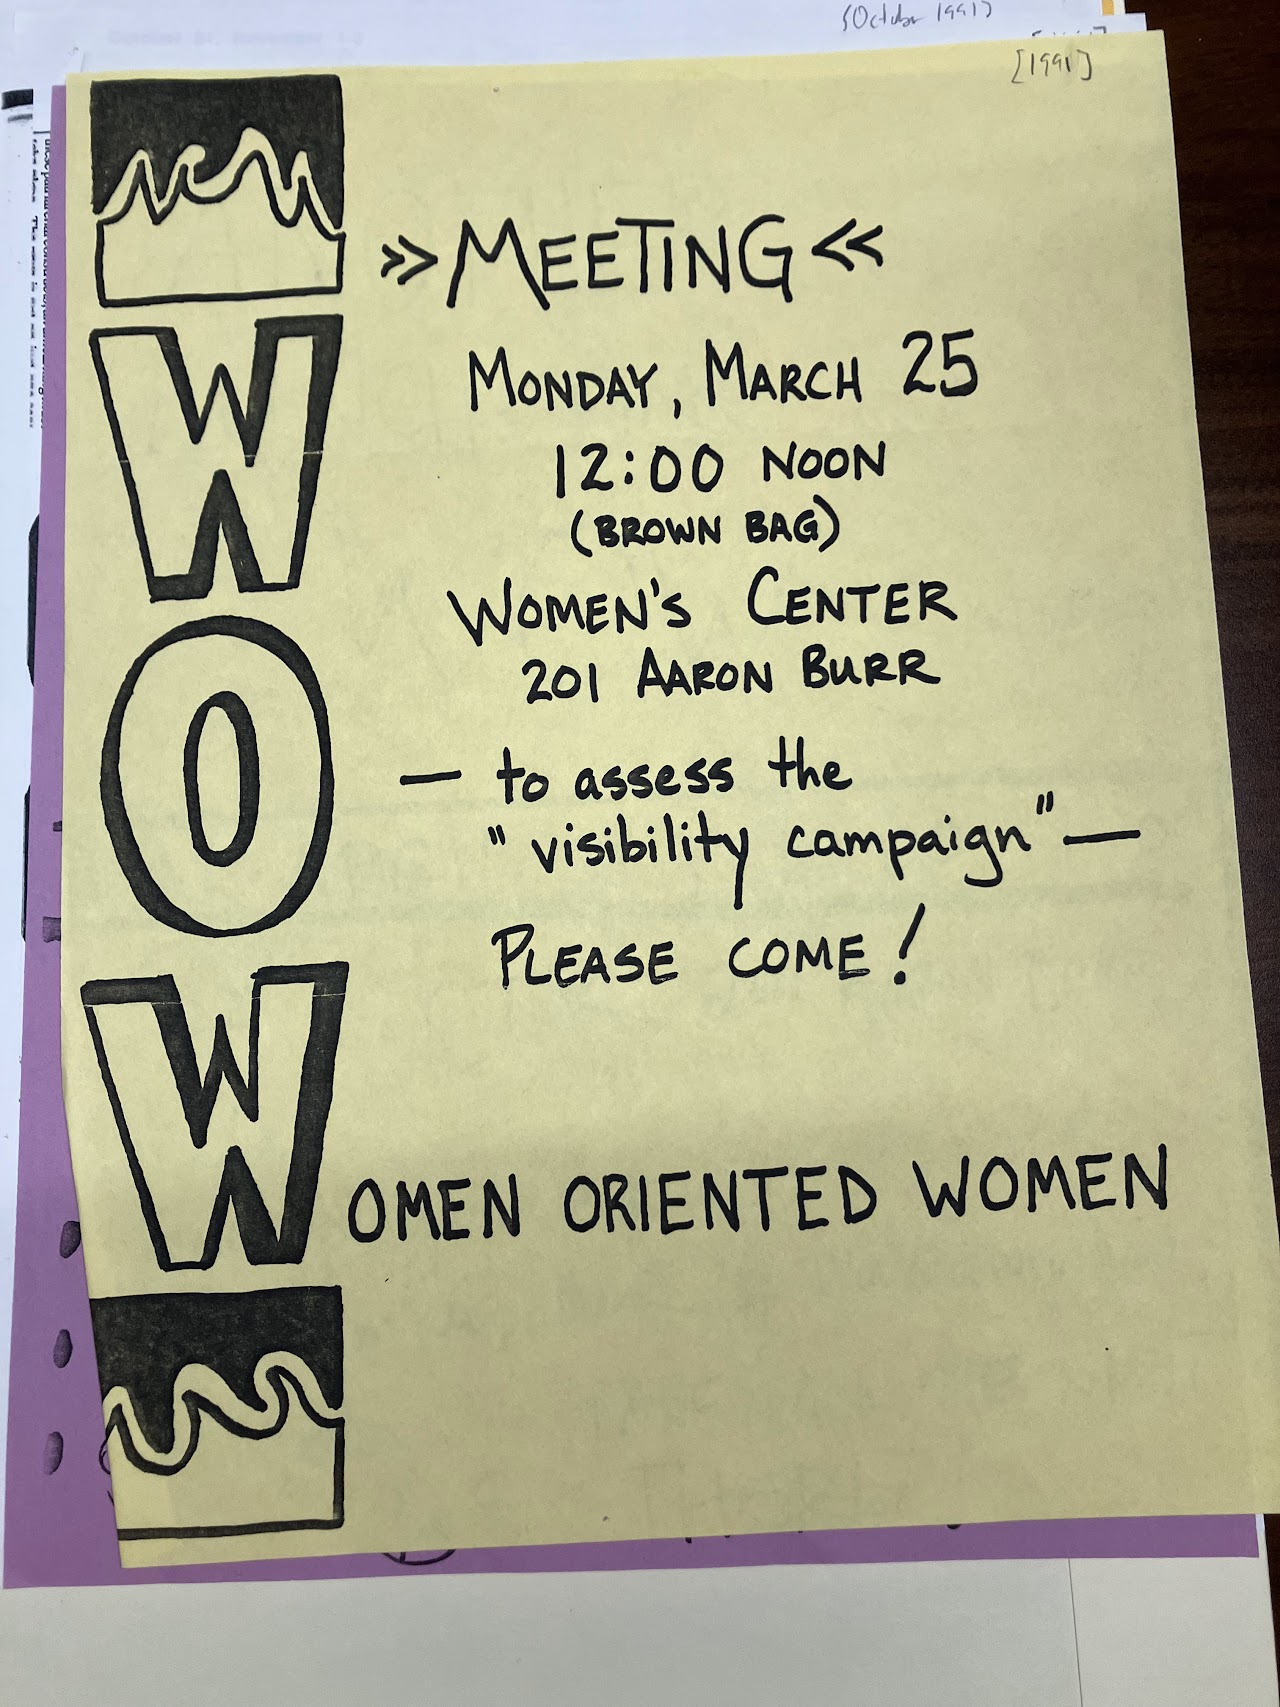 {October 1991}
[1991]
» MEETING «
MONDAY, MARCH 25
12:00 NOON
(BROWN BAG)
WOMEN'S CENTER
201 AARON BURR
— to assess the
"visibility campaign" —
PLEASE COME!
WOW
WOMEN ORIENTED WOMEN